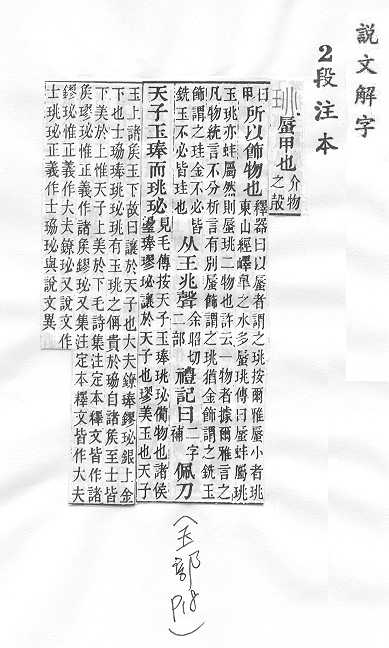 說文解字
2段注本
珧 蜃甲也 介物
之𣪊
曰
甲 所以飾物也 釋器曰以蜃者謂之珧按爾雅蜃小者珧
東山經嶧皋之水多蜃珧傳曰蜃蚌屬珧
玉珧亦蚌屬然則蜃珧二物也許云一物者據爾雅言之
凡物統言不分析言有別蜃飾謂之珧猶金飾謂之銑玉
飾謂之珪金不必皆
銑玉不必皆珪也 从王兆聲 余昭切
二部 禮記曰 二字
補 佩刀
天子玉琫而珧珌 見毛傳按天子玉琫珧珌備物也諸侯
璗琫璆珌讓於天子也璆美玉也天子
玉上諸侯玉下故曰讓於天子也大夫鐐琫鏐珌銀上金
下也士珕琫珧珌珧有玉珧之偁貴於珕自諸侯至士皆
下美於上惟天子上美於下毛詩集注定本釋文皆作諸
侯璆珌惟正義作諸侯鏐珌又集注定本釋文皆作大夫
鏐珌惟正義作大夫鐐珌又說文作
士珧珌正義作士珕珌與說文異
(玉部 P18)